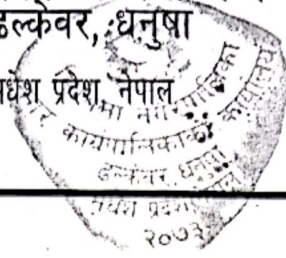 ढल्केवर, धनुषा
मधेश प्रदेश, नेपाल
नगरपालिका
कार्यपालिकाको कार्यालय
ढल्केवर, धनुषा
मधेश प्रदेश
२०७३